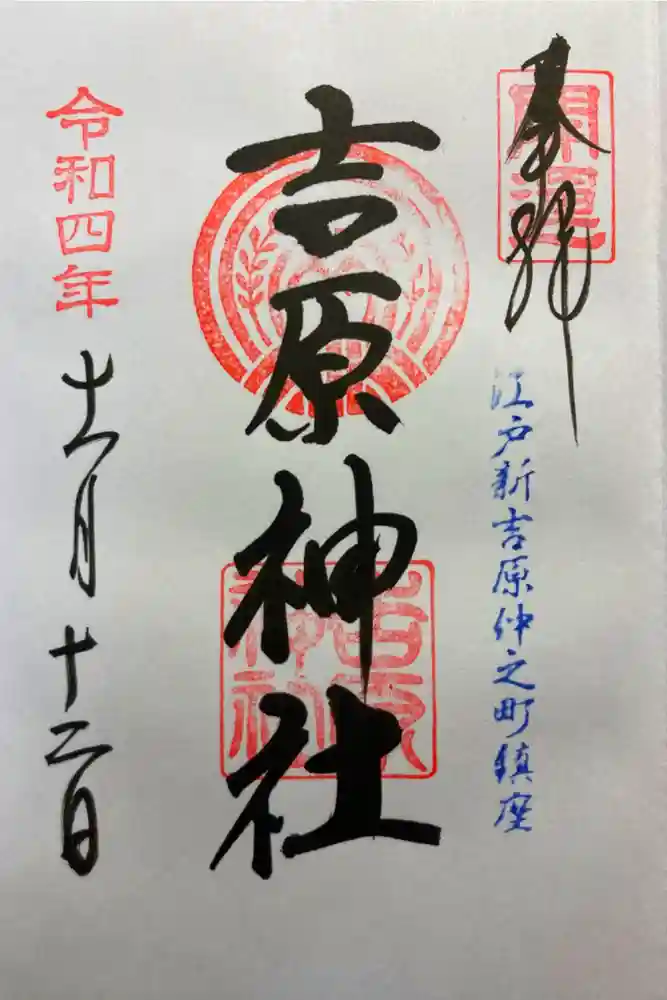 奉拝
開運
江戸新吉原仲之町鎮座
吉原神社
吉原
神社
令和四年
十一月十二日